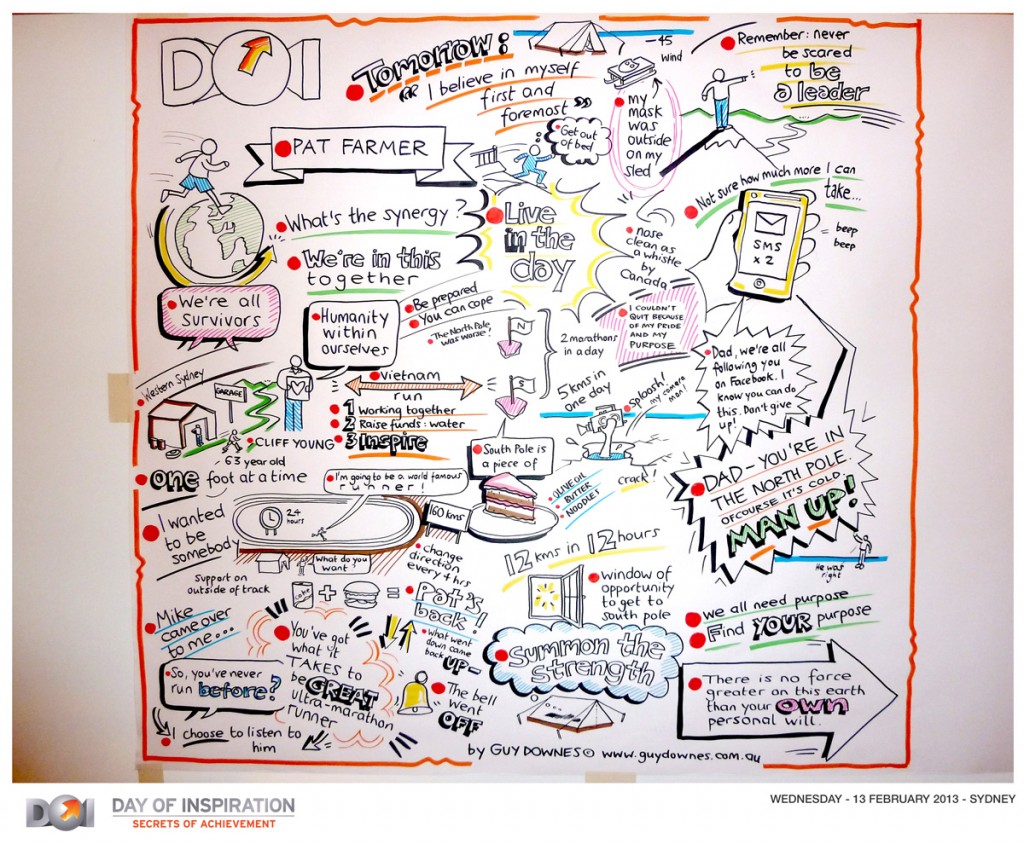 DOI
Tomorrow:
"I believe in myself
first and
foremost"
-45
wind
Remember: never
be scared
to be
a leader
my
mask
was
outside
on my
sled
Get out
of bed
PAT FARMER
What's the synergy?
We're in this
together
We're all
Survivors
Live
in the
day
nose
clean as
a whistle
by
Canada
Not sure how much more I can
take...
SMS
x 2
beep
beep
Humanity
within
ourselves
Be prepared
You can cope
The North Pole
was worse!
N
S
2 marathons
in a day
I COULDN'T
QUIT BECAUSE
OF MY PRIDE
AND MY
PURPOSE
Dad, we're all
following you
on Facebook. I
know you can do
this. Don't give
up!
Western Sydney
GARAGE
CLIFF YOUNG
63 year old
one foot at a time
Vietnam
run
1 Working together
2 Raise funds: water
3 Inspire
5kms in
one day
Sploosh!
my camera
man!
crack!
South Pole is
a piece of
OLIVE OIL
BUTTER
NOODLES
DAD - YOU'RE IN
THE NORTH POLE.
OFCOURSE IT'S COLD.
MAN UP!
He was
right
I wanted
to be
somebody
I'm going to be a world famous
runner!
24
hours
160 kms
What do you
want?
change
direction
every 4 hrs
12 kms in 12 hours
window of
opportunity
to get to
south pole
Support on
outside of track
coke
+
=
Pat's
back!
what went
down came
back UP-
Mike
came over
to me...
So, you've never
run before?
I choose to listen to
him
You've got
what it
TAKES to
be GREAT
ultra-marathon
runner
The bell
went
OFF
Summon the
strength
we all need purpose
Find YOUR purpose
There is no force
greater on this earth
than your OWN
personal will.
by GUY DOWNES © www.guydownes.com.au
DOI
DAY OF INSPIRATION
SECRETS OF ACHIEVEMENT
WEDNESDAY - 13 FEBRUARY 2013 - SYDNEY